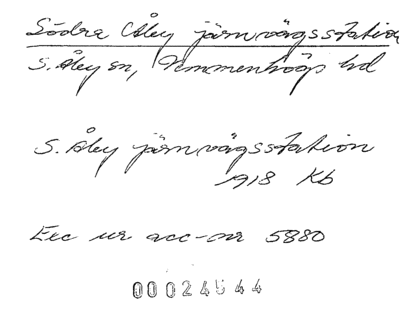 Södra Åby järnvägsstation
S. Åby sn, Vemmenhögs hd
S. Åby järnvägsstation
1918 Kb
Exc ur acc-nr 5880
00024544